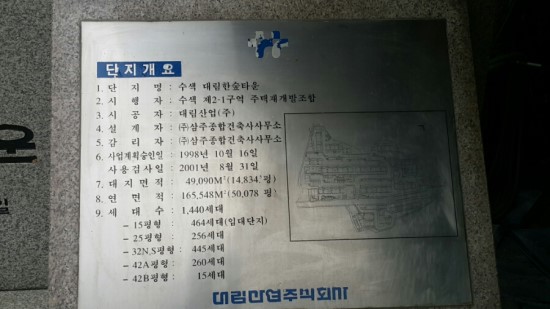 단지개요
1. 단 지 명 : 수색 대림한숲타운
2. 시 행 자 : 수색 제2-1구역 주택재개발조합
3. 시 공 자 : 대림산업(주)
4. 설 계 자 : ㈜삼주종합건축사사무소
5. 감 리 자 : ㈜삼주종합건축사사무소
6. 사업계획승인일 : 1998년 10월 16일
사 용 검 사 일 : 2001년 8월 31일
7. 대 지 면 적 : 49,090M²(14,834.7평)
8. 연 면 적 : 165,548M²(50,078 평)
9. 세 대 수 : 1,440세대
- 15평형 : 464세대(임대단지)
- 25평형 : 256세대
- 32N,S평형 : 445세대
- 42A평형 : 260세대
- 42B평형 : 15세대
대림산업주식회사
일